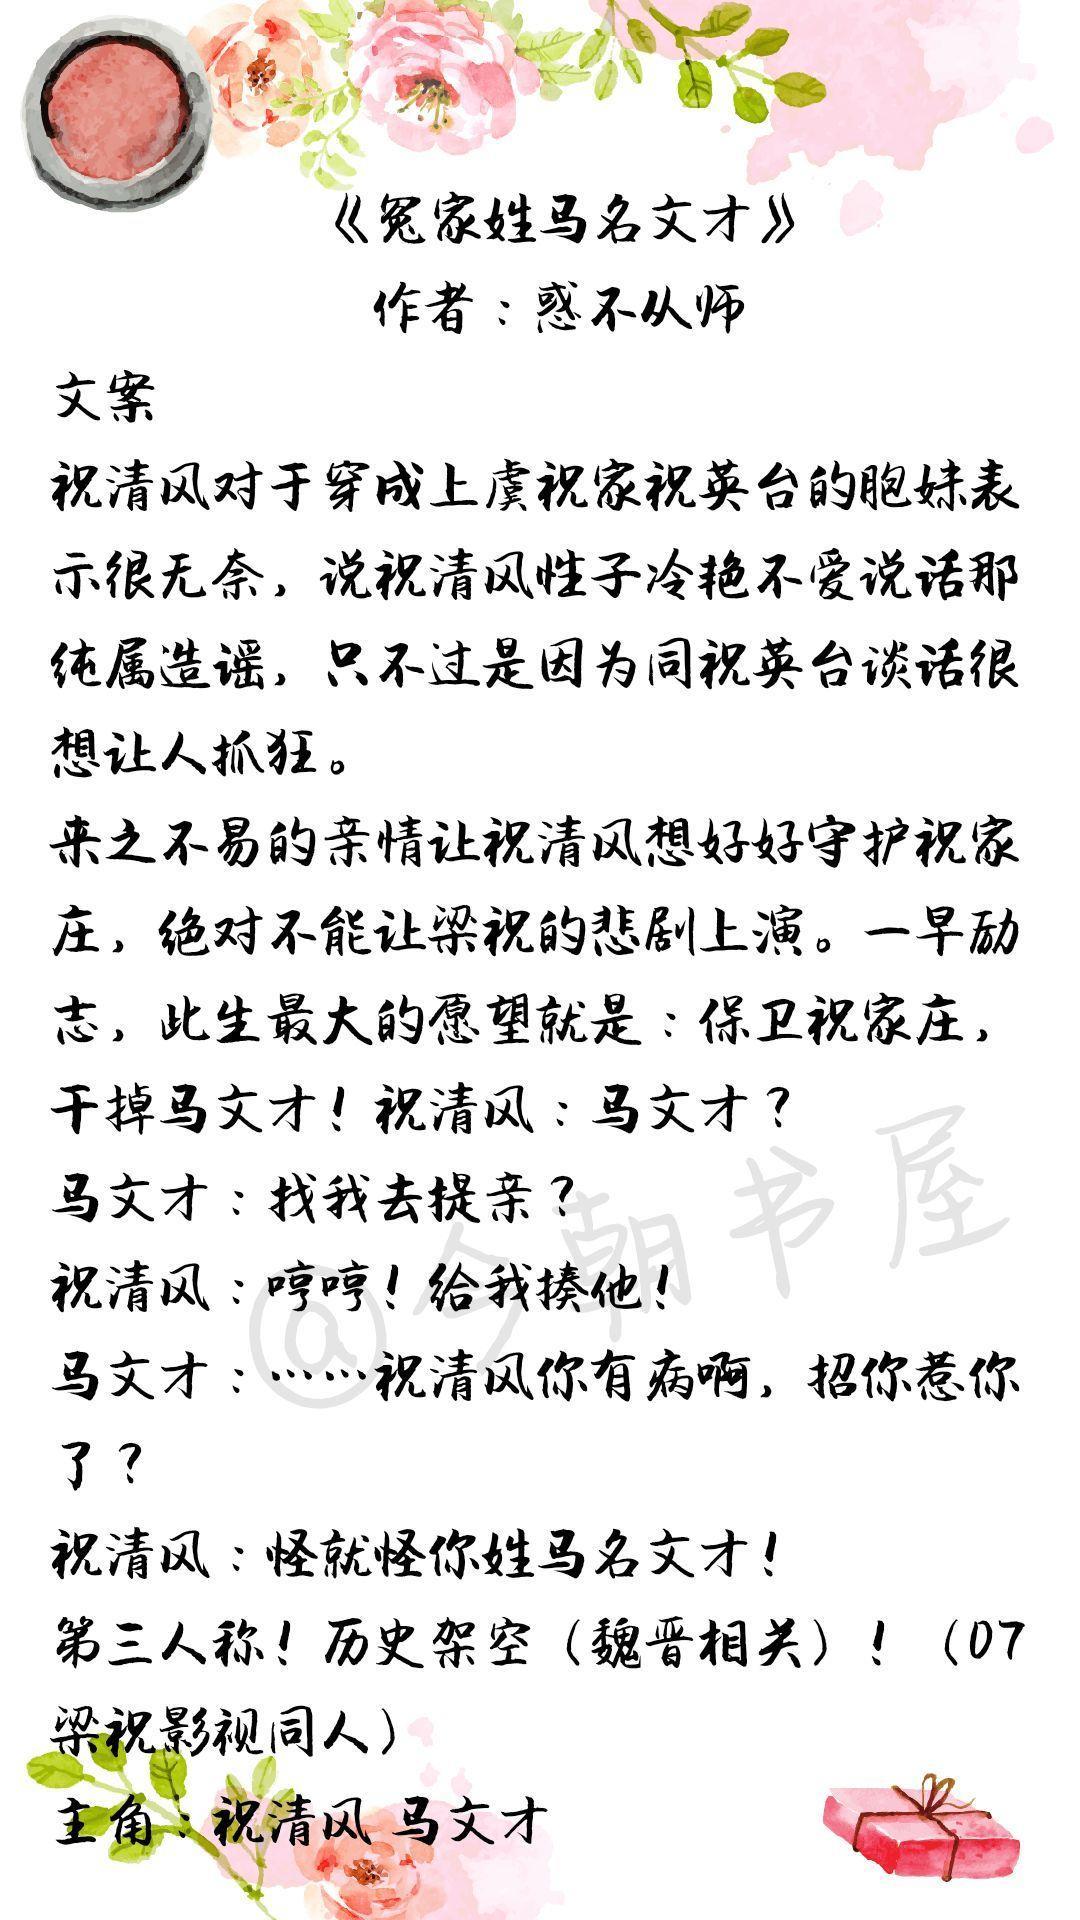 《冤家姓马名文才》
作者：惑不从师
文案
祝清风对于穿成上虞祝家祝英台的胞妹表
示很无奈，说祝清风性子冷艳不爱说话那
纯属造谣，只不过是因为同祝英台谈话很
想让人抓狂。
来之不易的亲情让祝清风想好好守护祝家
庄，绝对不能让梁祝的悲剧上演。一早励
志，此生最大的愿望就是：保卫祝家庄，
干掉马文才！祝清风：马文才？
马文才：找我去提亲？
祝清风：哼哼！给我揍他！
马文才：……祝清风你有病啊，招你惹你
了？
祝清风：怪就怪你姓马名文才！
第三人称！历史架空（魏晋相关）！（07
梁祝影视同人）
主角：祝清风 马文才
@今朝书屋